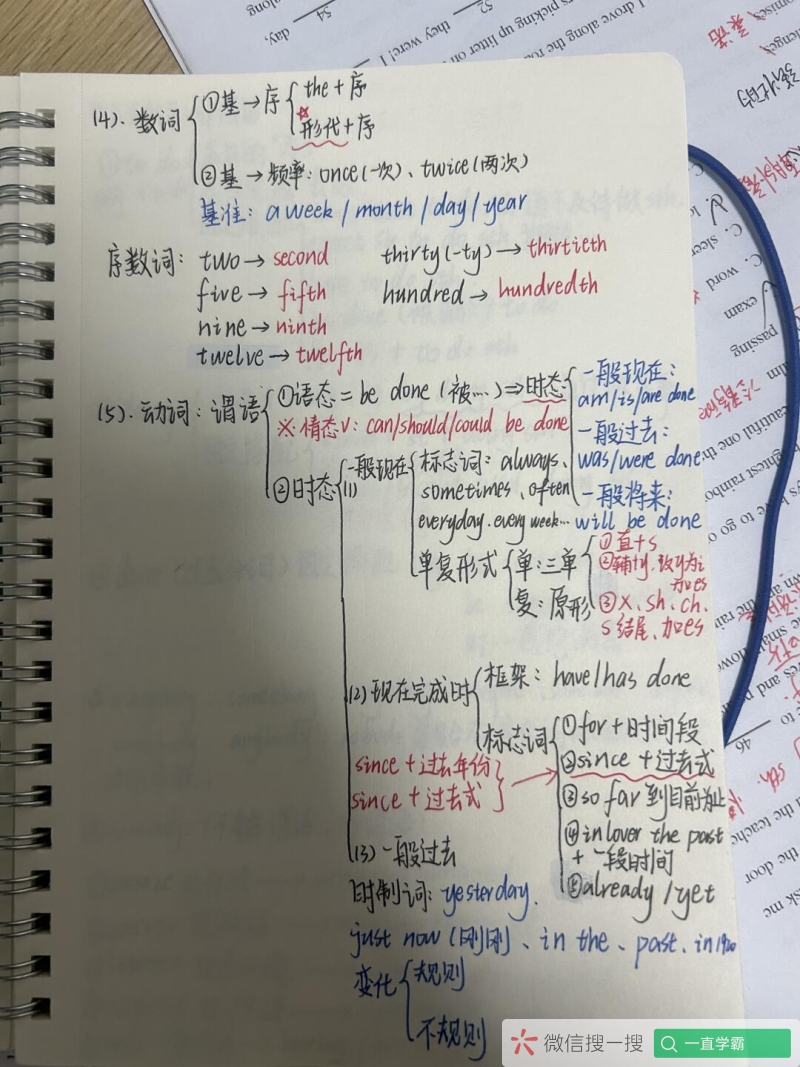 (4). 数词
①基→序
the+序
☆形代+序
②基→频率: once(一次)、twice(两次)
基准: a week / month / day / year
序数词: two→second thirty(-ty)→thirtieth
five→fifth hundred→hundredth
nine→ninth
twelve→twelfth
(5). 动词: 谓语
①语态=be done(被…)⇒时态
※情态v: can/should/could be done
一般现在:
am/is/are done
一般过去:
was/were done
一般将来:
will be done
②时态
(1)一般现在
标志词: always、
sometimes、often
everyday. every week…
单复形式
单:三单
复:原形
①直+s
②辅+y.改y为i
加es
③x、sh、ch、
s结尾、加es
(2)现在完成时
框架: have/has done
标志词
①for+时间段
②since+过去式
③so far到目前为止
④in/over the past
+一段时间
⑤already/yet
since+过去年份
since+过去式
(3)一般过去
时制词: yesterday.
just now(刚刚)、in the、past、in 1920
变化
规则
不规则
54
day,
along
52
they were! I
rs picking up litter on
I drove along the ro
承诺
C. slee
C. word
exam
passing
46
sk me
the door
the teache
sth.
微信搜一搜
一直学霸